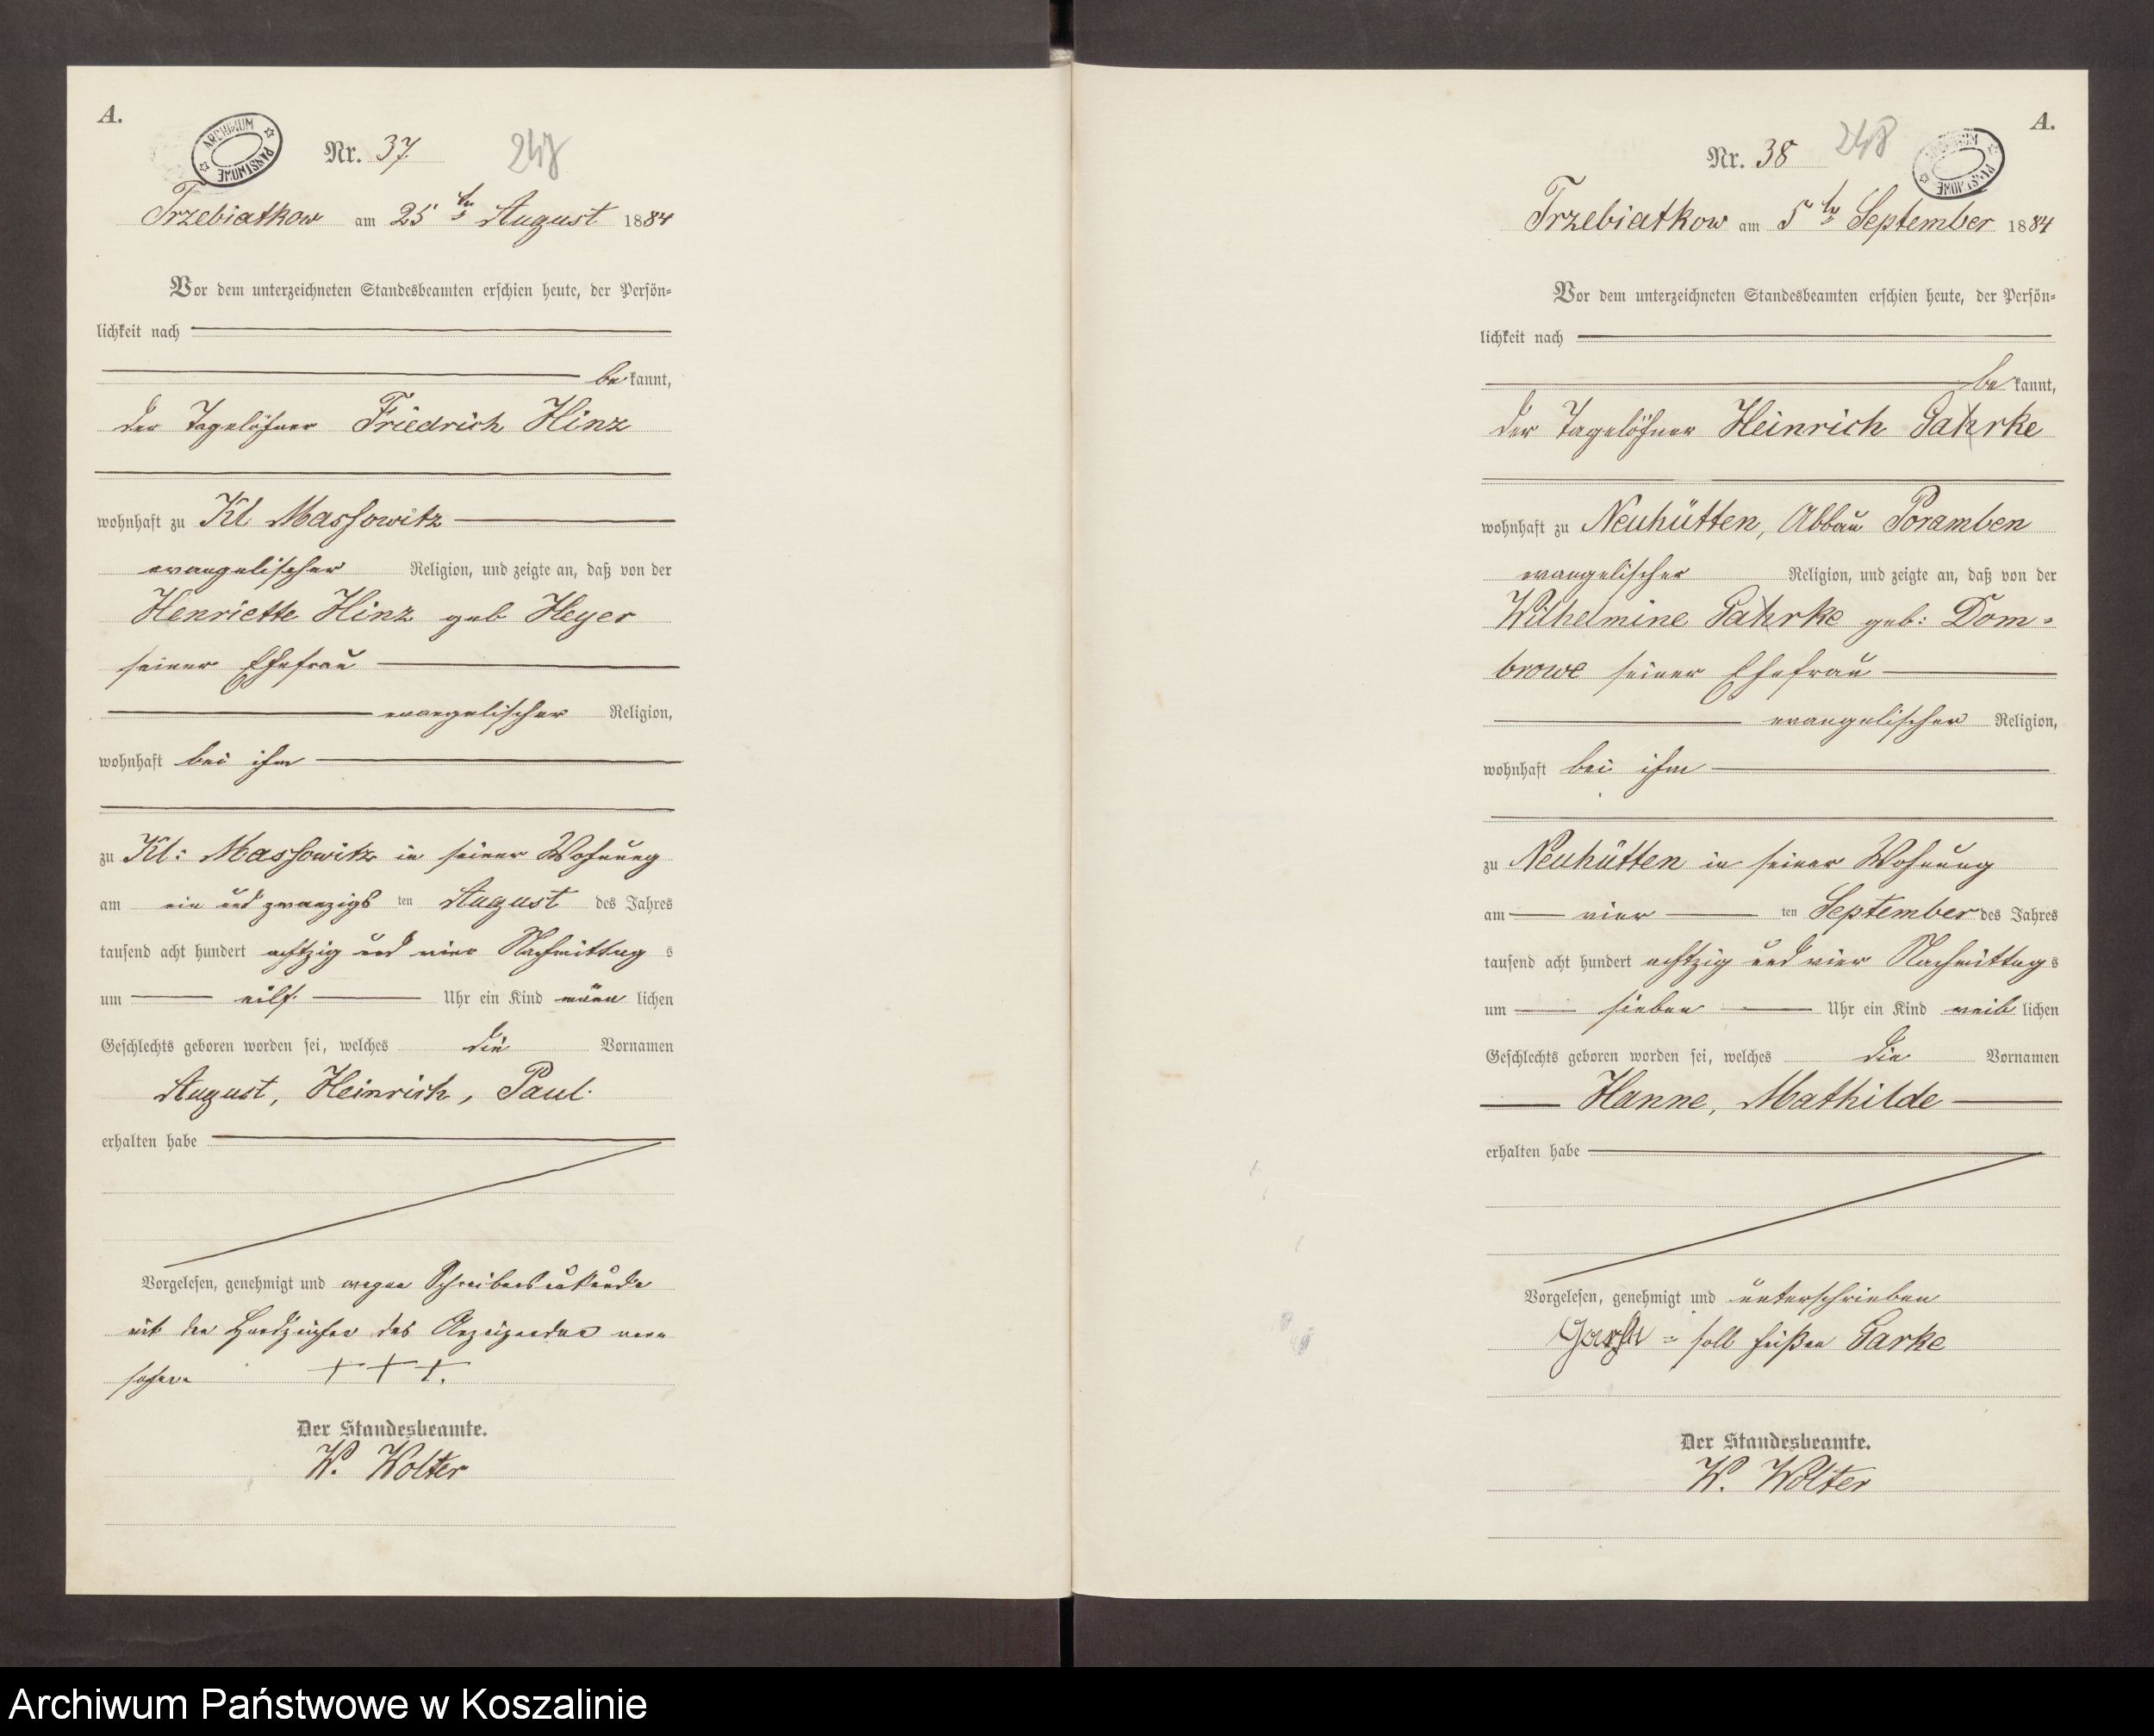 A.
ARCHIWUM PAŃSTWOWE
Nr. 37.
247
Trzebiatkow am 25ten August 1884
Vor dem unterzeichneten Standesbeamten erschien heute, der Persön-
lichkeit nach
bekannt,
der Tagelöhner Friedrich Hinz
wohnhaft zu Kl Massowitz
evangelischer Religion, und zeigte an, daß von der
Henriette Hinz geb Heyer
seiner Ehefrau
evangelischer Religion,
wohnhaft bei ihm
zu Kl: Massowitz in seiner Wohnung
am ein und zwanzigsten August des Jahres
tausend acht hundert achtzig und vier Nachmittags
um eilf Uhr ein Kind männlichen
Geschlechts geboren worden sei, welches die Vornamen
August, Heinrich, Paul.
erhalten habe
Vorgelesen, genehmigt und wegen Schreibensunkunde
mit den Handzeichen des Anzeigenden ver-
sehen. + + +.
Der Standesbeamte.
W. Wolter
A.
Nr. 38
248
ARCHIWUM PAŃSTWOWE
Trzebiatkow am 5ten September 1884
Vor dem unterzeichneten Standesbeamten erschien heute, der Persön-
lichkeit nach
bekannt,
der Tagelöhner Heinrich Gahrke
wohnhaft zu Neuhütten, Abbau Poramben
evangelischer Religion, und zeigte an, daß von der
Wilhelmine Gahrke geb: Dom-
browe seiner Ehefrau
evangelischer Religion,
wohnhaft bei ihm
zu Neuhütten in seiner Wohnung
am vierten September des Jahres
tausend acht hundert achtzig und vier Nachmittags
um sieben Uhr ein Kind weiblichen
Geschlechts geboren worden sei, welches die Vornamen
Hanne, Mathilde
erhalten habe
Vorgelesen, genehmigt und unterschrieben
= soll heißen Garke
Der Standesbeamte.
W. Wolter
Archiwum Państwowe w Koszalinie